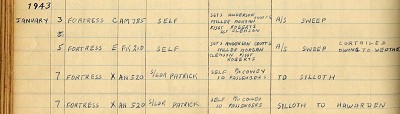 1943
JANUARY 3 FORTRESS C AM 785 SELF SGTS ANDERSON COUTTS MILLER MORGAN F/SGT ROBERTS A/S SWEEP
5 FORTRESS E FK 210 SELF SGTS ANDERSON COUTTS MILLER MORGAN CLEMSON F/SGT ROBERTS A/S SWEEP CURTAILED OWING TO WEATHER
7 FORTRESS X AN 520 S/LDR PATRICK SELF McCOWEY 10 PASSENGERS TO SILLOTH
7 FORTRESS X AN 520 S/LDR PATRICK SELF McCOWEY 10 PASSENGERS SILLOTH TO HAWARDEN